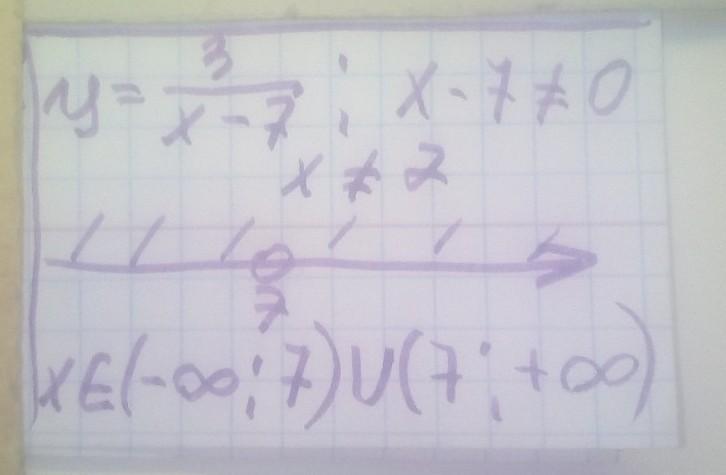 y = 3/(x - 7) ; x - 7 ≠ 0
x ≠ 2
7
x ∈ (-∞; 7) ∪ (7; +∞)